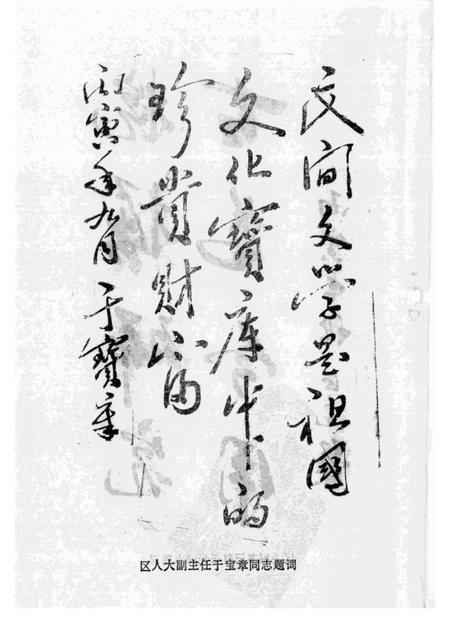 民间文学是祖國
文化寳库中的
珍貴財富
丙寅年九月 于寳章
区人大副主任于宝章同志题词